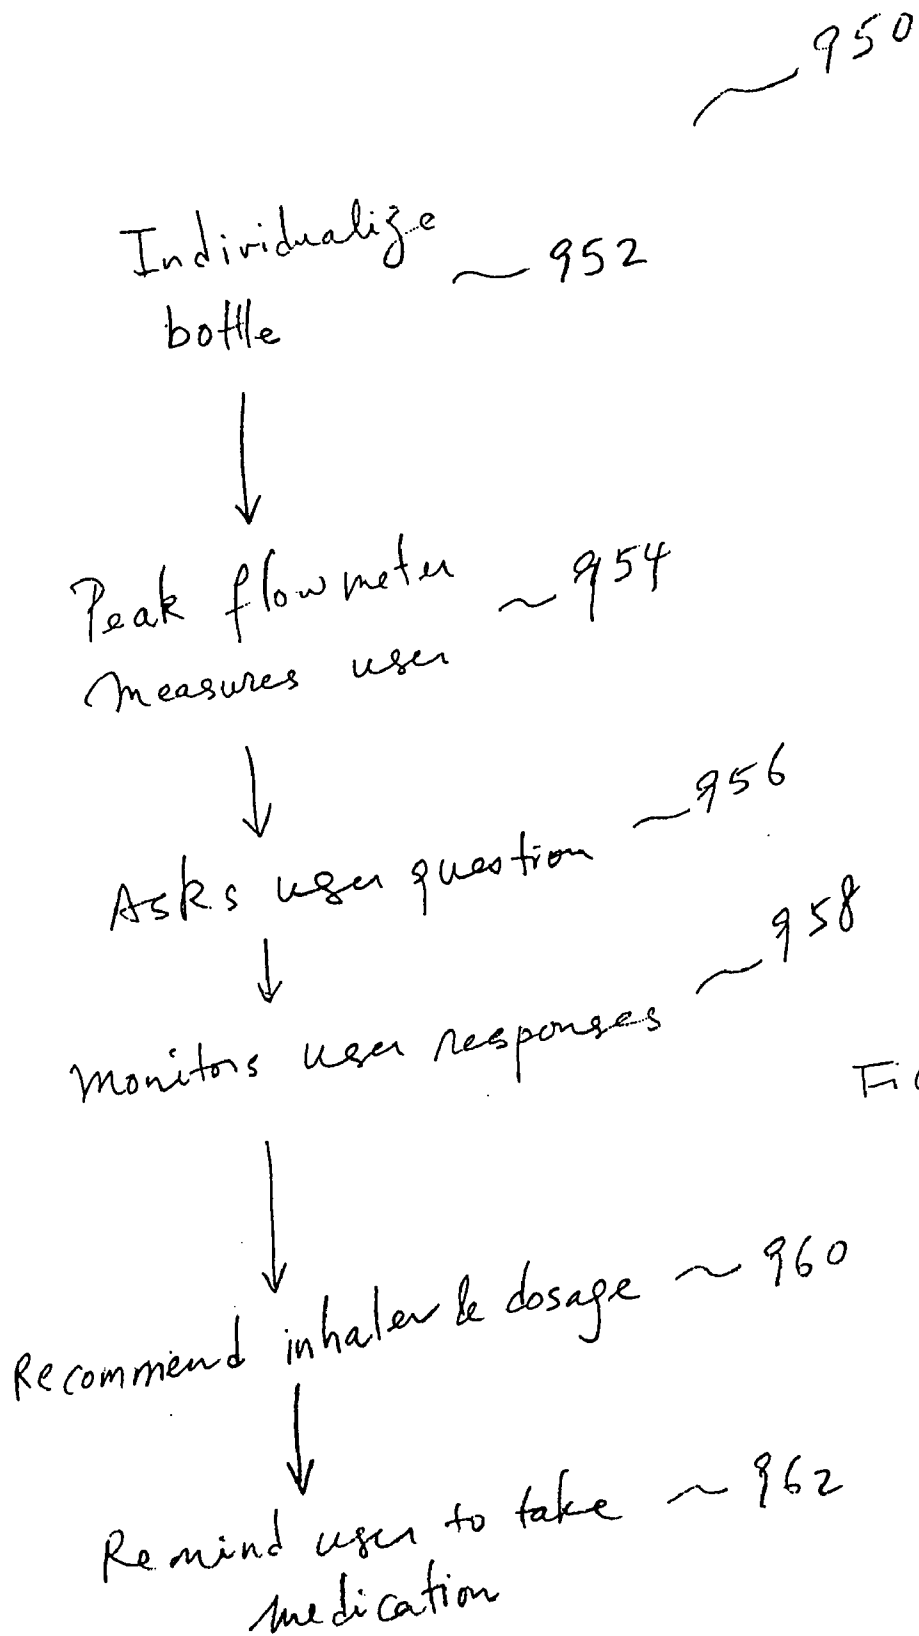 950
Individualize ~ 952
bottle
Peak flow meter ~ 954
measures user
Asks user question ~ 956
Monitors user responses ~ 958
Recommend inhaler & dosage ~ 960
Remind user to take ~ 962
medication